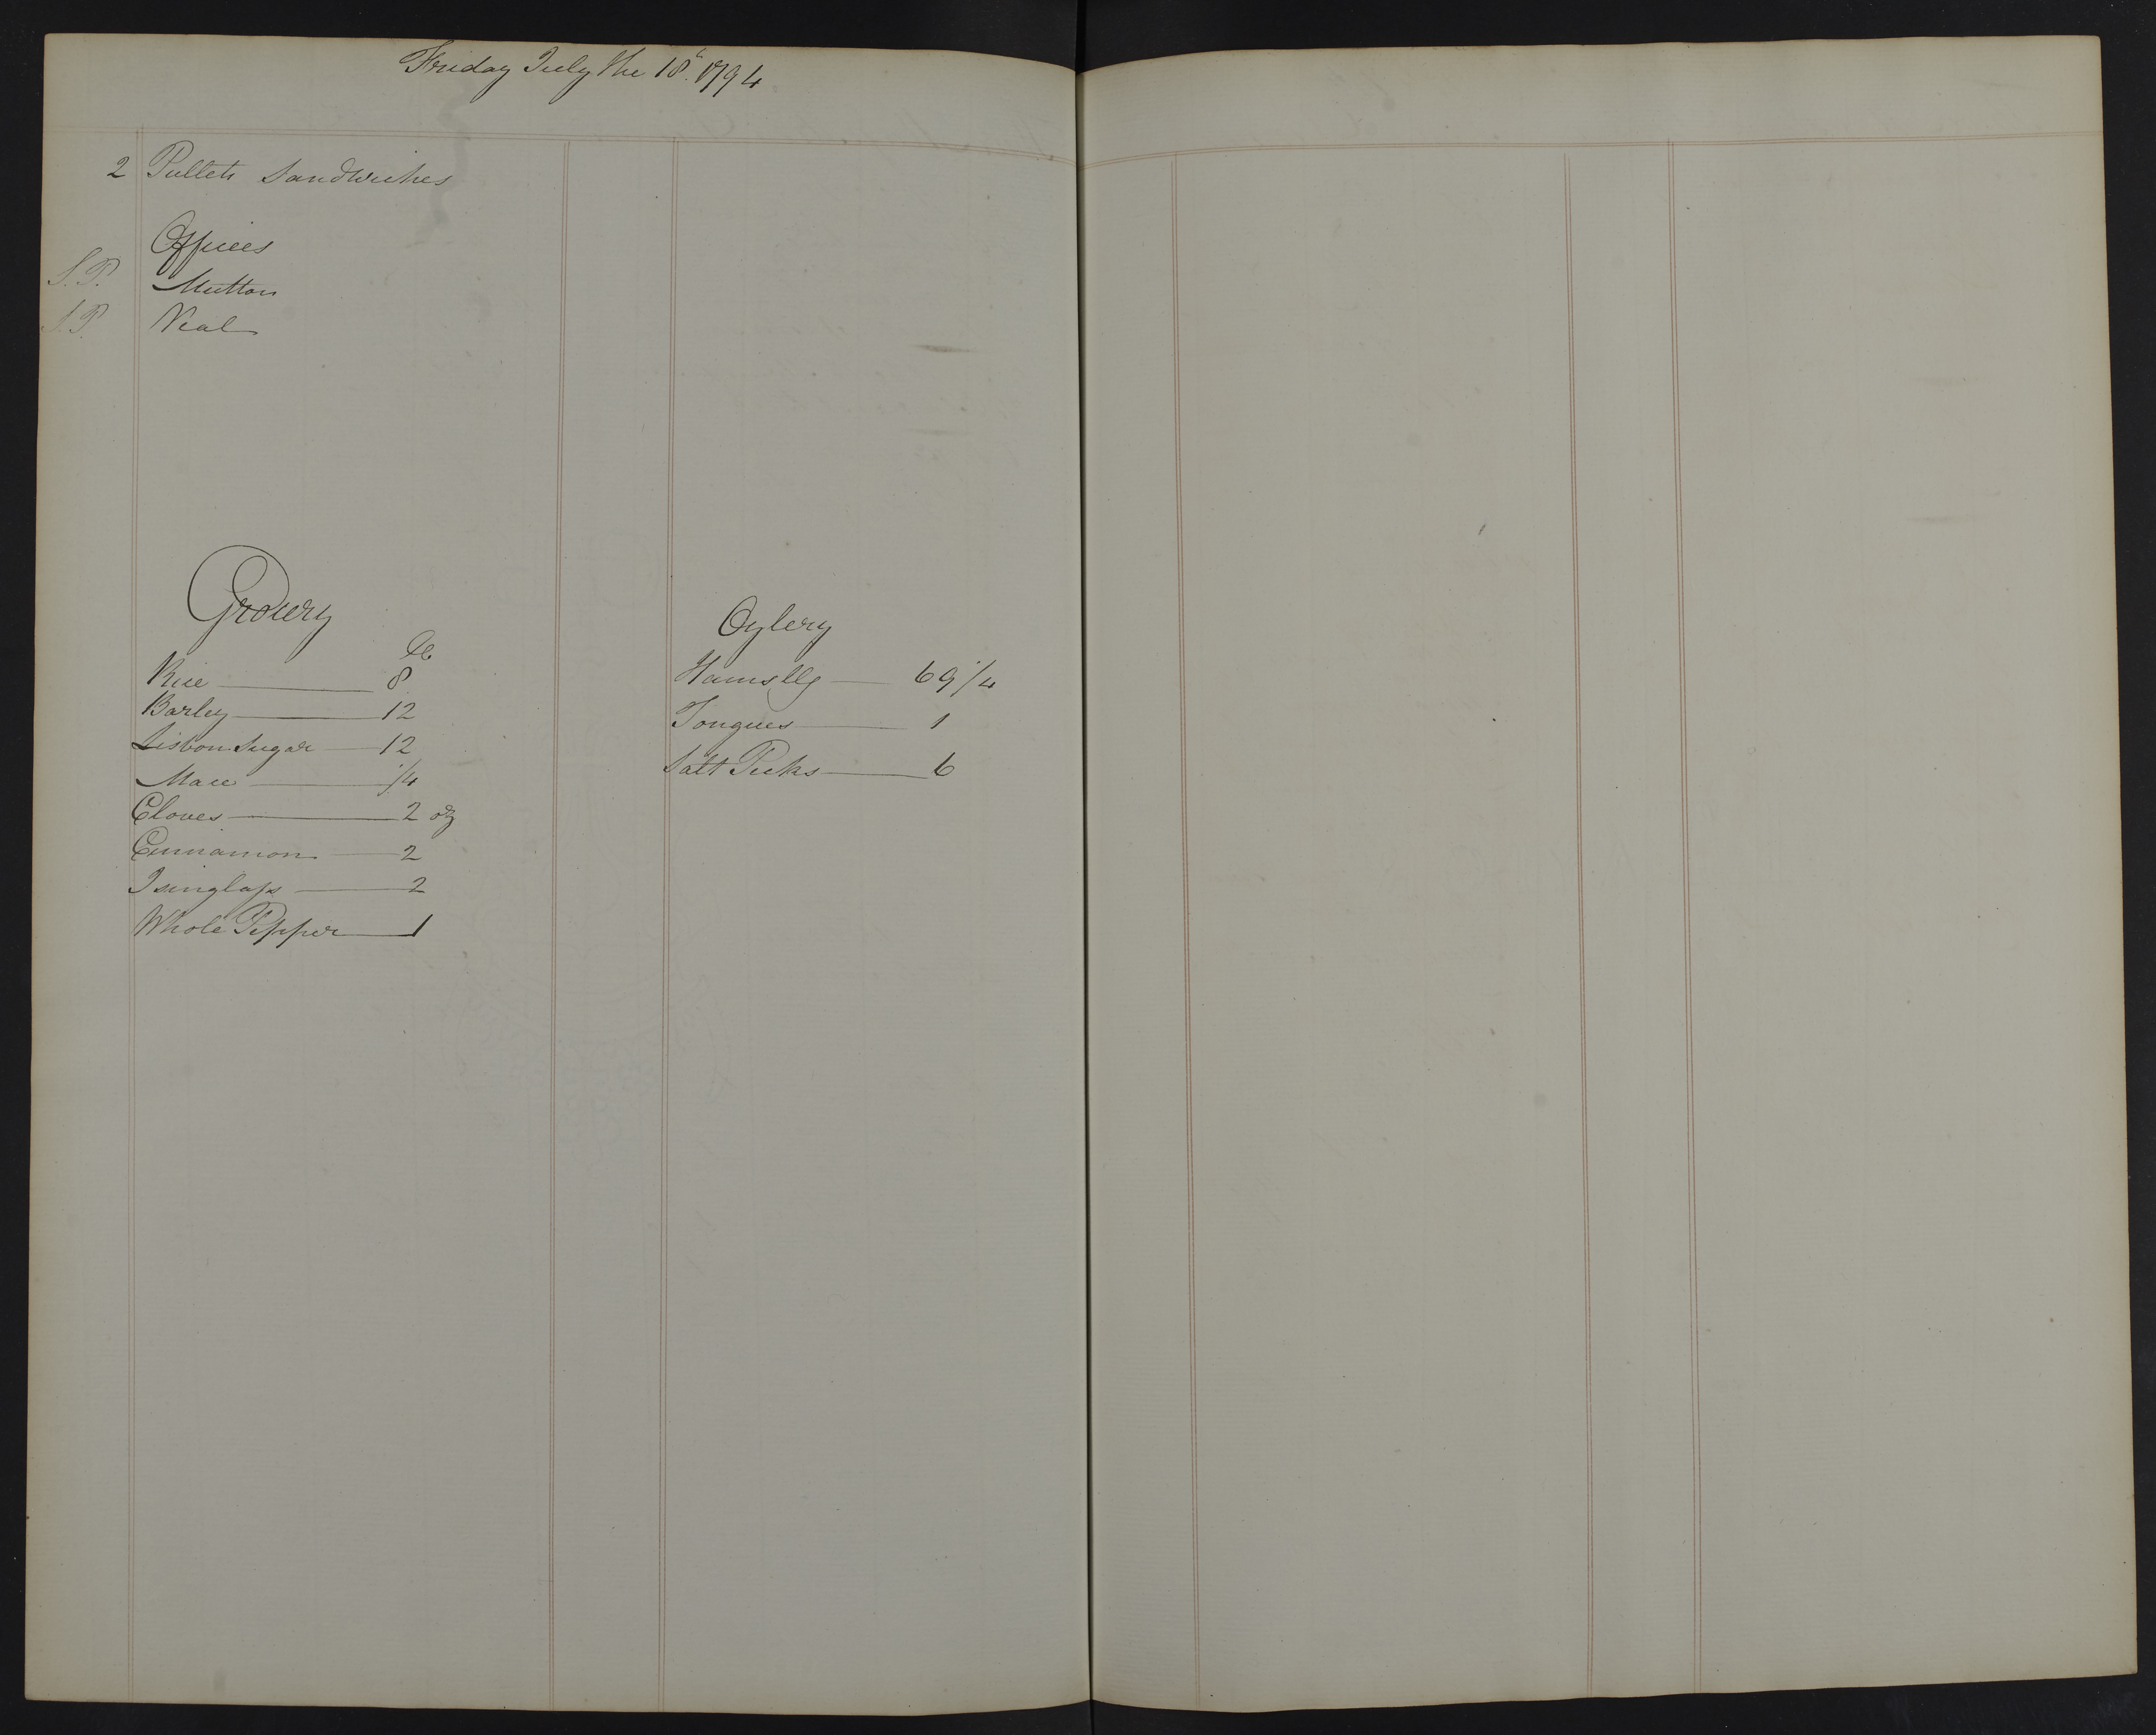 Friday July the 18th 1794
2 Pullets Sandwiches
Offices
S.P. Mutton
S.P. Veal
Grocery
lb
Rice 8
Barley 12
Lisbon Sugar 12
Mace 1/4
Cloves 2 oz
Cinnamon 2
Isinglass 2
Whole Pepper 1
Oylery
Hams llg 69 1/4
Tongues 1
Salt Picks 6